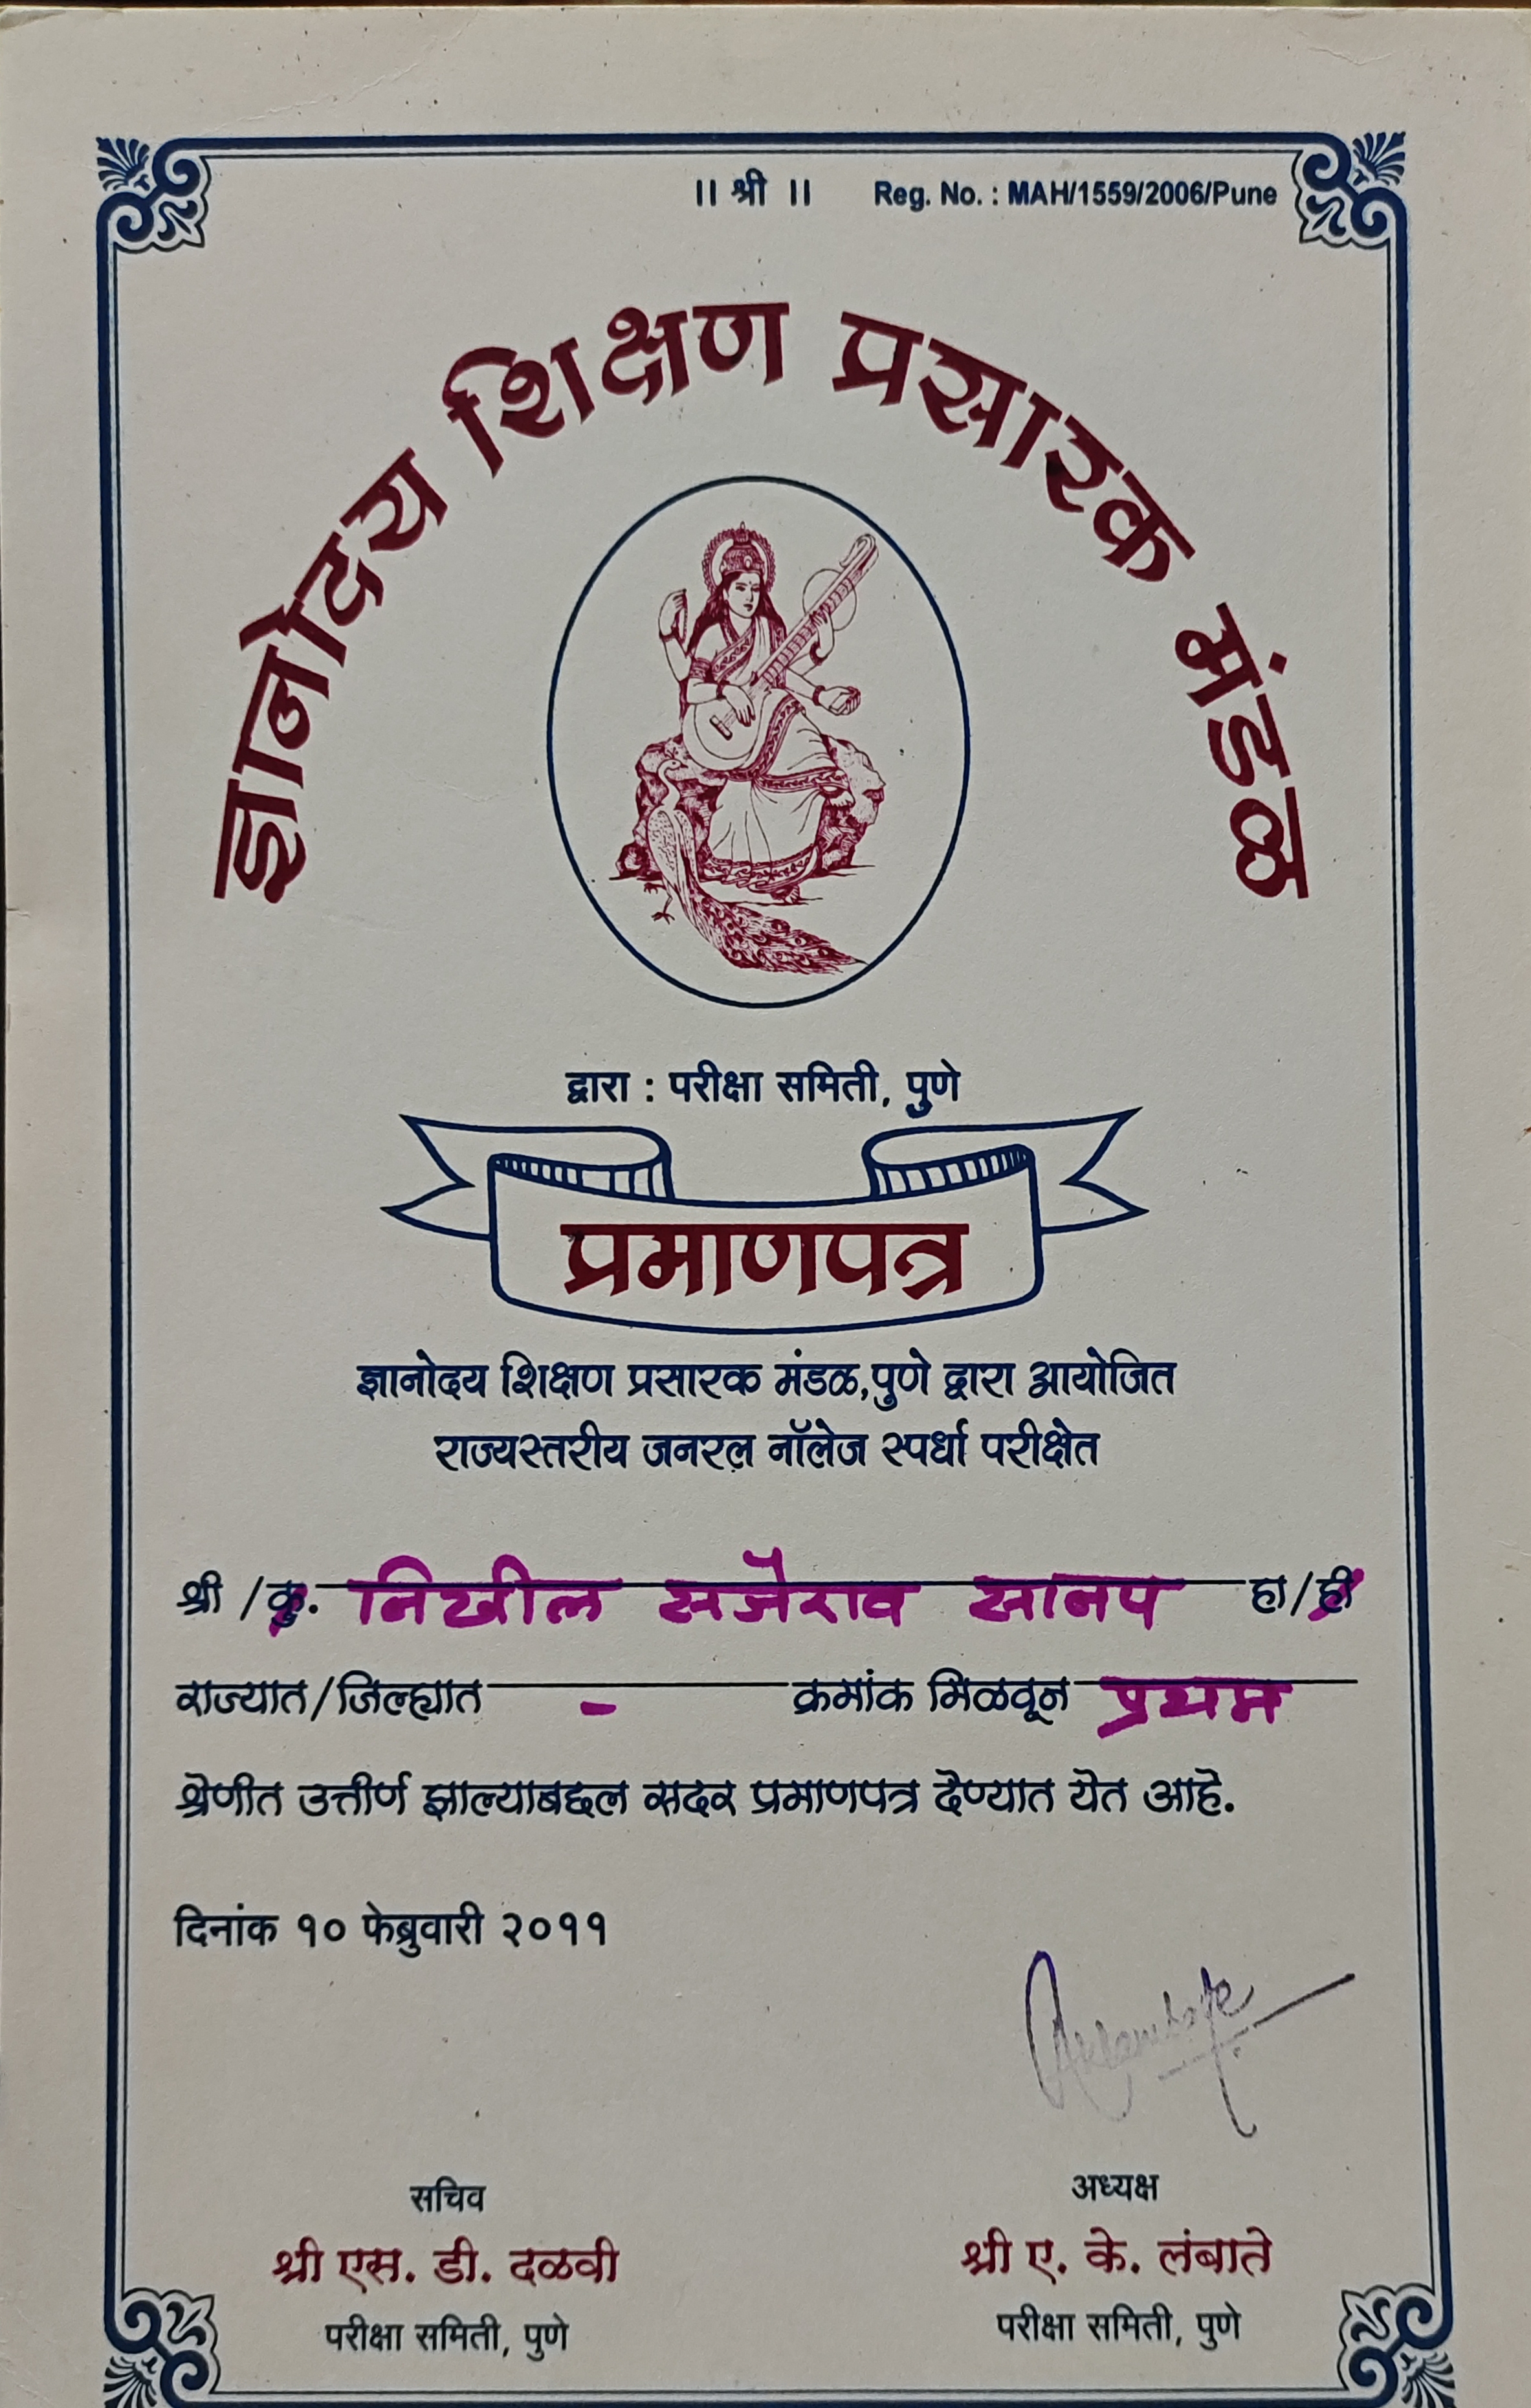 ।। श्री ।। Reg. No. : MAH/1559/2006/Pune
ज्ञानोदय शिक्षण प्रसारक मंडळ
द्वारा : परीक्षा समिती, पुणे
प्रमाणपत्र
ज्ञानोदय शिक्षण प्रसारक मंडळ,पुणे द्वारा आयोजित
राज्यस्तरीय जनरल नॉलेज स्पर्धा परीक्षेत
श्री /कु. निखील सर्जेराव सानप हा/ही
राज्यात/जिल्ह्यात - क्रमांक मिळवून प्रथम
श्रेणीत उत्तीर्ण झाल्याबद्दल सदर प्रमाणपत्र देण्यात येत आहे.
दिनांक १० फेब्रुवारी २०११
सचिव
श्री एस. डी. दळवी
परीक्षा समिती, पुणे
अध्यक्ष
श्री ए. के. लंबाते
परीक्षा समिती, पुणे